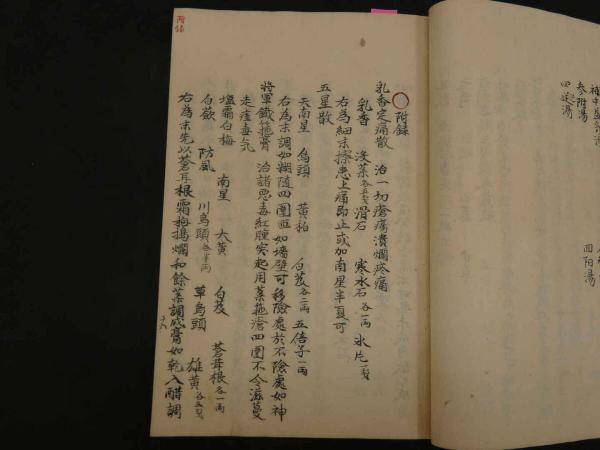 補中益氣湯
參附湯
四逆湯
回陽湯
附錄
附錄
乳香定痛散 治一切瘡瘍潰爛疼痛
乳香 沒藥各五錢 滑石 寒水石各一兩 氷片一錢
右為細末搽患上痛即止或加南星半夏可
五星散
天南星 烏頭 黃柏 白芨各二兩 五倍子一兩
右為末調如糊隨四圍匝如墻壁可移險處於不險處如神
將軍鐵箍膏 治諸惡毒紅腫突起用藥箍瘡四圍不令滋蔓
走疰毒氣
塩霜白梅 南星 大黃 白芨 蒼耳根各一兩
白蘞 防風 川烏頭各半兩 草烏頭 雄黃各三錢
右為末先以蒼耳根霜梅搗爛和餘藥調成膏如乾入醋調